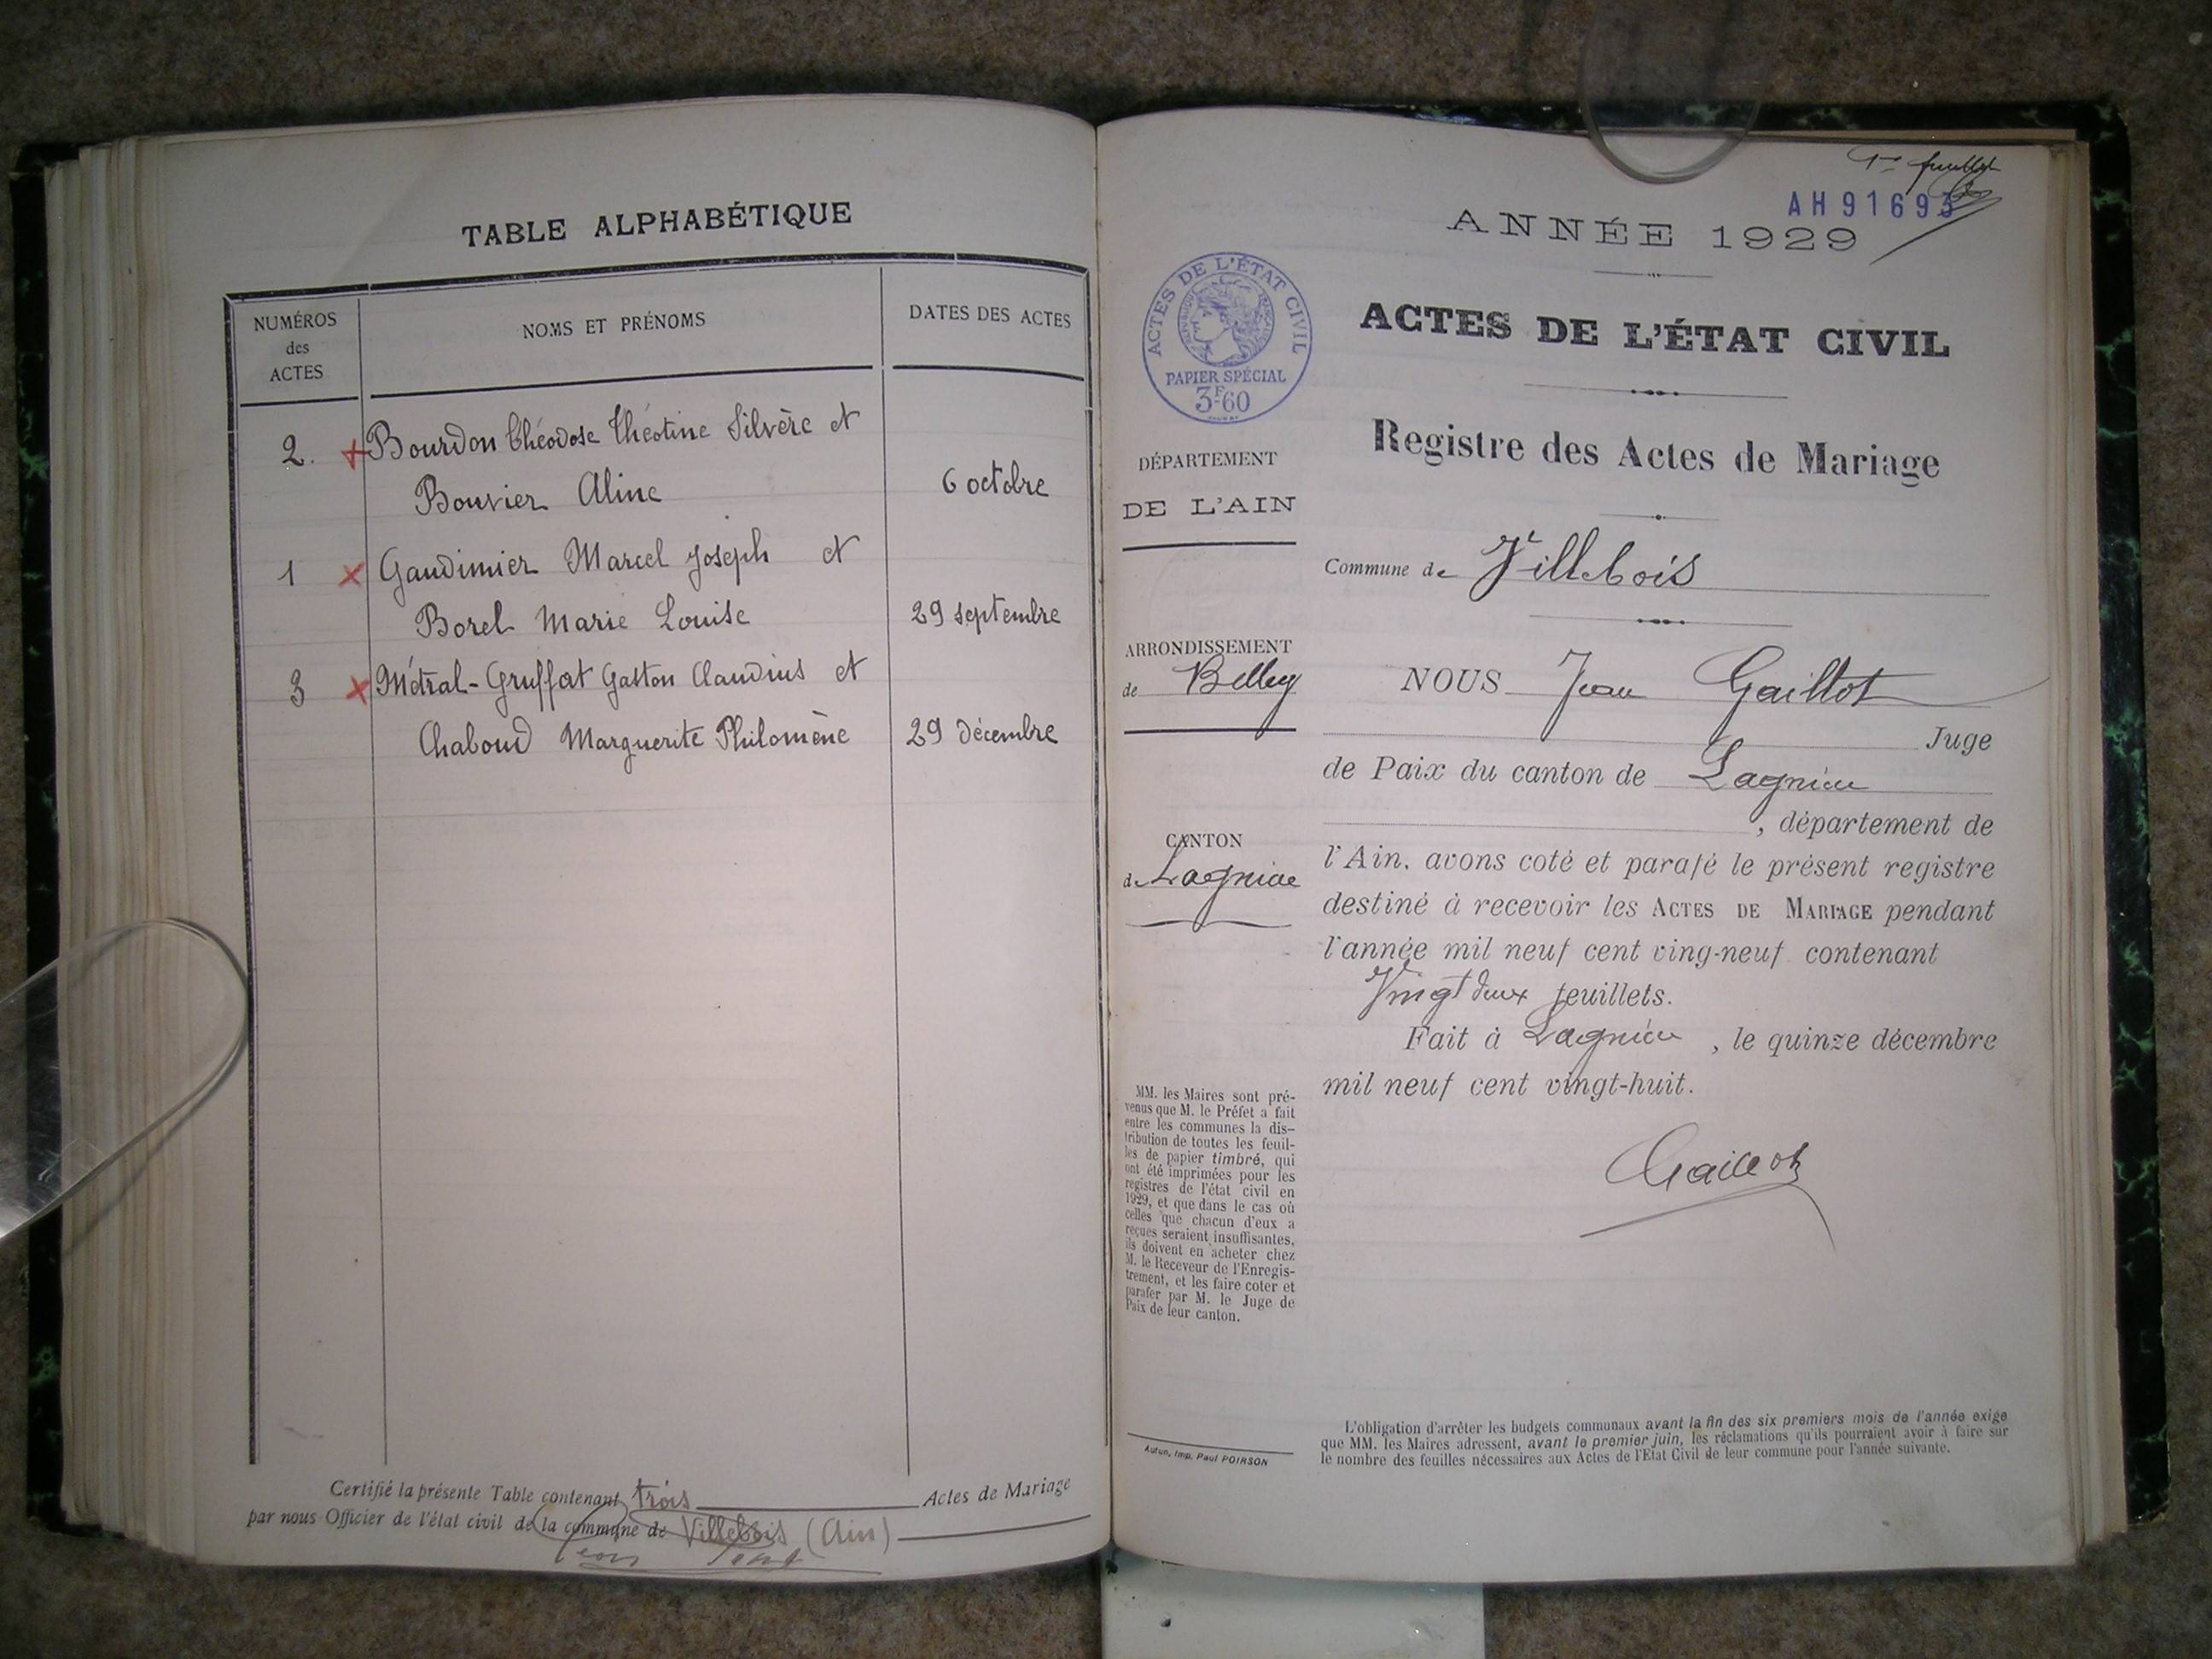 TABLE ALPHABÉTIQUE
NUMÉROS
des
ACTES
NOMS ET PRÉNOMS
DATES DES ACTES
2. Bourdon Théodose Théotine Silvère et
Bouvier Aline 6 octobre
1 Gaudimier Marcel Joseph et
Borel Marie Louise 29 septembre
3 Métral-Gruffat Gaston Claudius et
Chaboud Marguerite Philomène 29 décembre
Certifié la présente Table contenant trois Actes de Mariage
par nous Officier de l'état civil de la commune de Villebois (Ain)
1er feuillet
AH 91693
ANNÉE 1929
ACTES DE L'ÉTAT CIVIL
RÉPUBLIQUE FRANÇAISE
PAPIER SPÉCIAL
3F60
ACTES DE L'ÉTAT CIVIL
Registre des Actes de Mariage
DÉPARTEMENT
DE L'AIN
Commune de Villebois
ARRONDISSEMENT
de Belley
CANTON
de Lagnieu
NOUS Jean Gaillot
Juge
de Paix du canton de Lagnieu
, département de
l'Ain, avons coté et parafé le présent registre
destiné à recevoir les ACTES DE MARIAGE pendant
l'année mil neuf cent ving-neuf contenant
Vingt deux feuillets.
Fait à Lagnieu, le quinze décembre
mil neuf cent vingt-huit.
Gaillot
MM. les Maires sont pré-
venus que M. le Préfet a fait
entre les communes la dis-
tribution de toutes les feuil-
les de papier timbré, qui
ont été imprimées pour les
registres de l'état civil en
1929, et que dans le cas où
celles que chacun d'eux a
reçues seraient insuffisantes,
ils doivent en acheter chez
M. le Receveur de l'Enregis-
trement, et les faire coter et
parafer par M. le Juge de
Paix de leur canton.
Autun, Imp. Paul POIRSON
L'obligation d'arrêter les budgets communaux avant la fin des six premiers mois de l'année exige
que MM. les Maires adressent, avant le premier juin, les réclamations qu'ils pourraient avoir à faire sur
le nombre des feuilles nécessaires aux Actes de l'Etat Civil de leur commune pour l'année suivante.